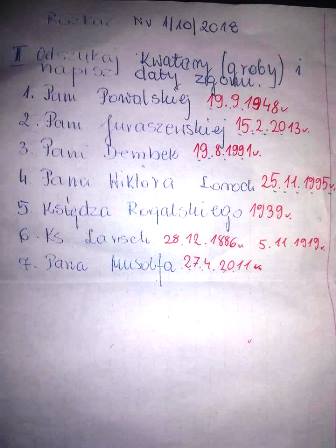 Rozkaz Nv 1/10/2018
II Odszukaj Kwatery (groby) i
napisz daty zgonu.
1. Pani Powalskiej 19.9.1948r.
2. Pani Juraszewskiej 15.2.2013r.
3. Pani Dembek 19.8.1991r.
4. Pana Wiktora 25.11.1995r.
5. Księdza 1939r.
6. Ks Larisch 28.12.1886r. 5.11.1919r.
7. Pana Musolfa 27.4.2011r.